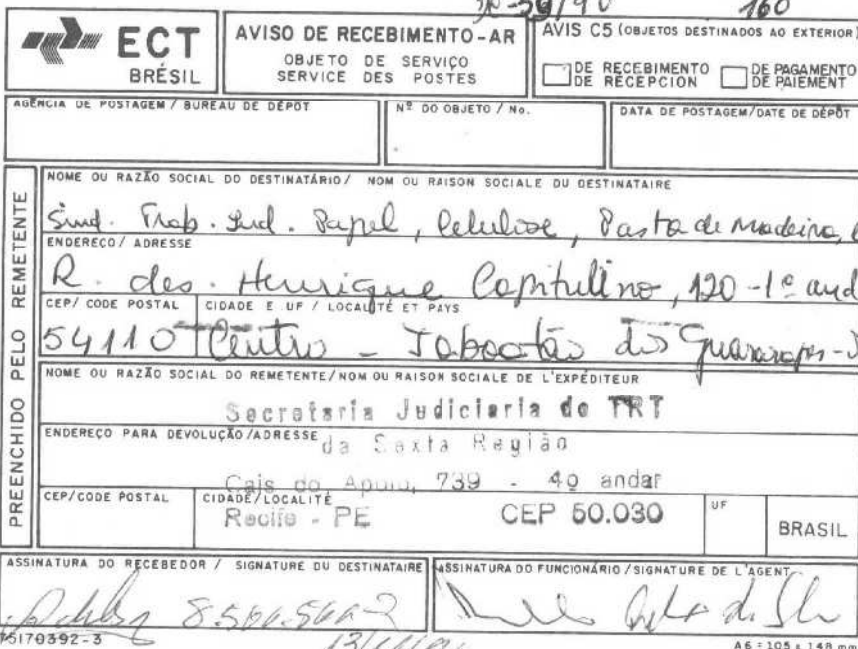 160
ECT
BRÉSIL
AVISO DE RECEBIMENTO-AR
OBJETO DE SERVIÇO
SERVICE DES POSTES
AVIS C5 (OBJETOS DESTINADOS AO EXTERIOR)
DE RECEBIMENTO
DE RÉCEPCION
DE PAGAMENTO
DE PAIEMENT
AGÊNCIA DE POSTAGEM / BUREAU DE DÉPÔT
Nº DO OBJETO / No.
DATA DE POSTAGEM/DATE DE DÉPÔT
PREENCHIDO PELO REMETENTE
NOME OU RAZÃO SOCIAL DO DESTINATÁRIO / NOM OU RAISON SOCIALE DU DESTINATAIRE
Sind. Trab. Ind. Papel, Celulose, Pasta de Madeira,
ENDEREÇO / ADRESSE
R. des. Henrique Capitulino, 120 - 1º and
CEP/ CODE POSTAL
CIDADE E UF / LOCALITÉ ET PAYS
54110 Centro - Jaboatão dos Guararapes -
NOME OU RAZÃO SOCIAL DO REMETENTE/NOM OU RAISON SOCIALE DE L'EXPÉDITEUR
Secretaria Judiciaria do TRT
ENDEREÇO PARA DEVOLUÇÃO/ADRESSE
da Sexta Região
Cais do Apolo, 739 - 4º andar
CEP/CODE POSTAL
CIDADE/LOCALITÉ
Recife - PE CEP 50.030
UF
BRASIL
ASSINATURA DO RECEBEDOR / SIGNATURE DU DESTINATAIRE
ASSINATURA DO FUNCIONÁRIO / SIGNATURE DE L'AGENT
75170392-3
A6 = 105 x 148 mm